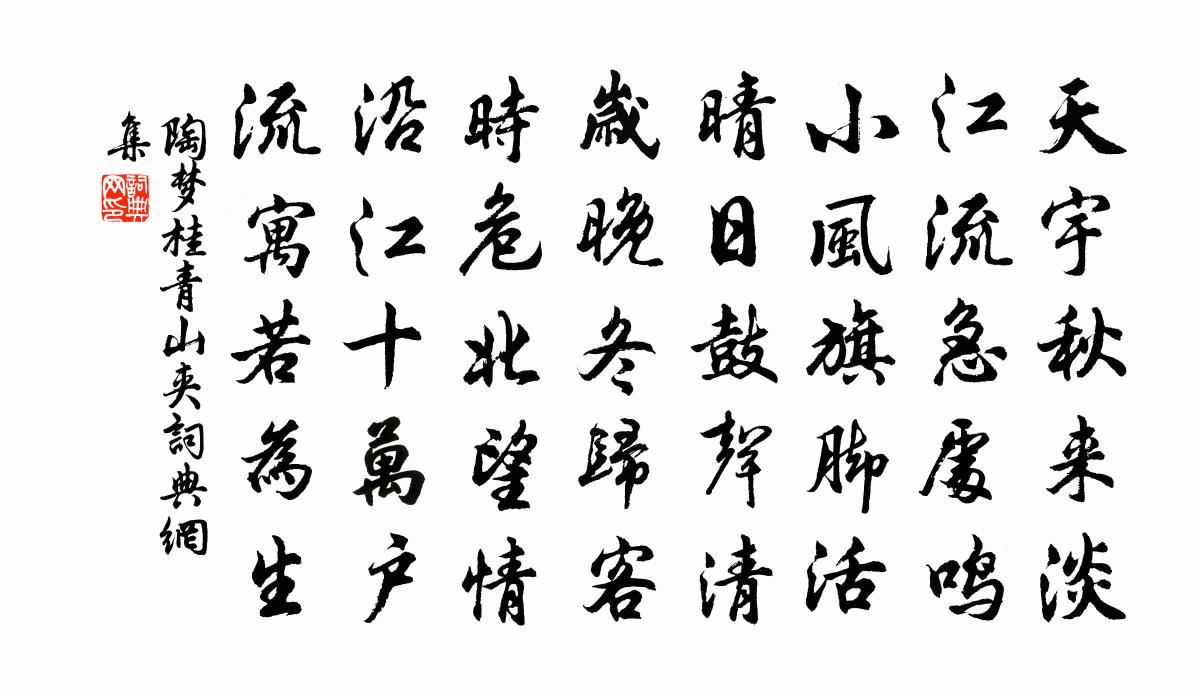 天宇秋来淡
江流急處鸣
小風旗脚活
晴日鼓聲清
歲晚冬歸客
時危北望情
沿江十萬户
流寓若為生
陶梦桂青山夾詞典網
集
詞典
网印